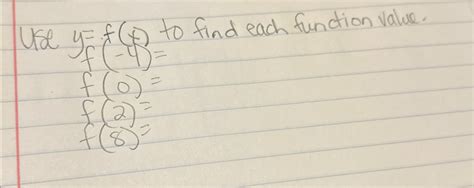 Use y=f(t) to find each function value.
f(-4)=
f(0)=
f(2)=
f(8)=